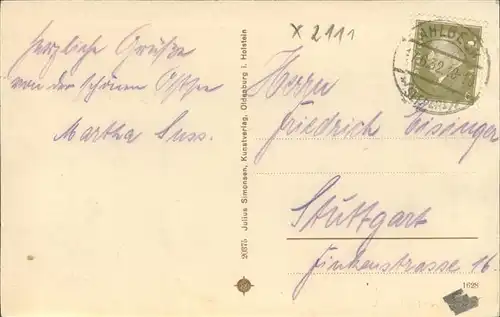 Herzliche Grüße
von der schönen Ostsee
Martha Suss.
x 2111
AHLBE
Herrn
Friedrich Eisinger
Stuttgart
Finkenstrasse 16.
20375 Julius Simonsen, Kunstverlag, Oldenburg i. Holstein
1628